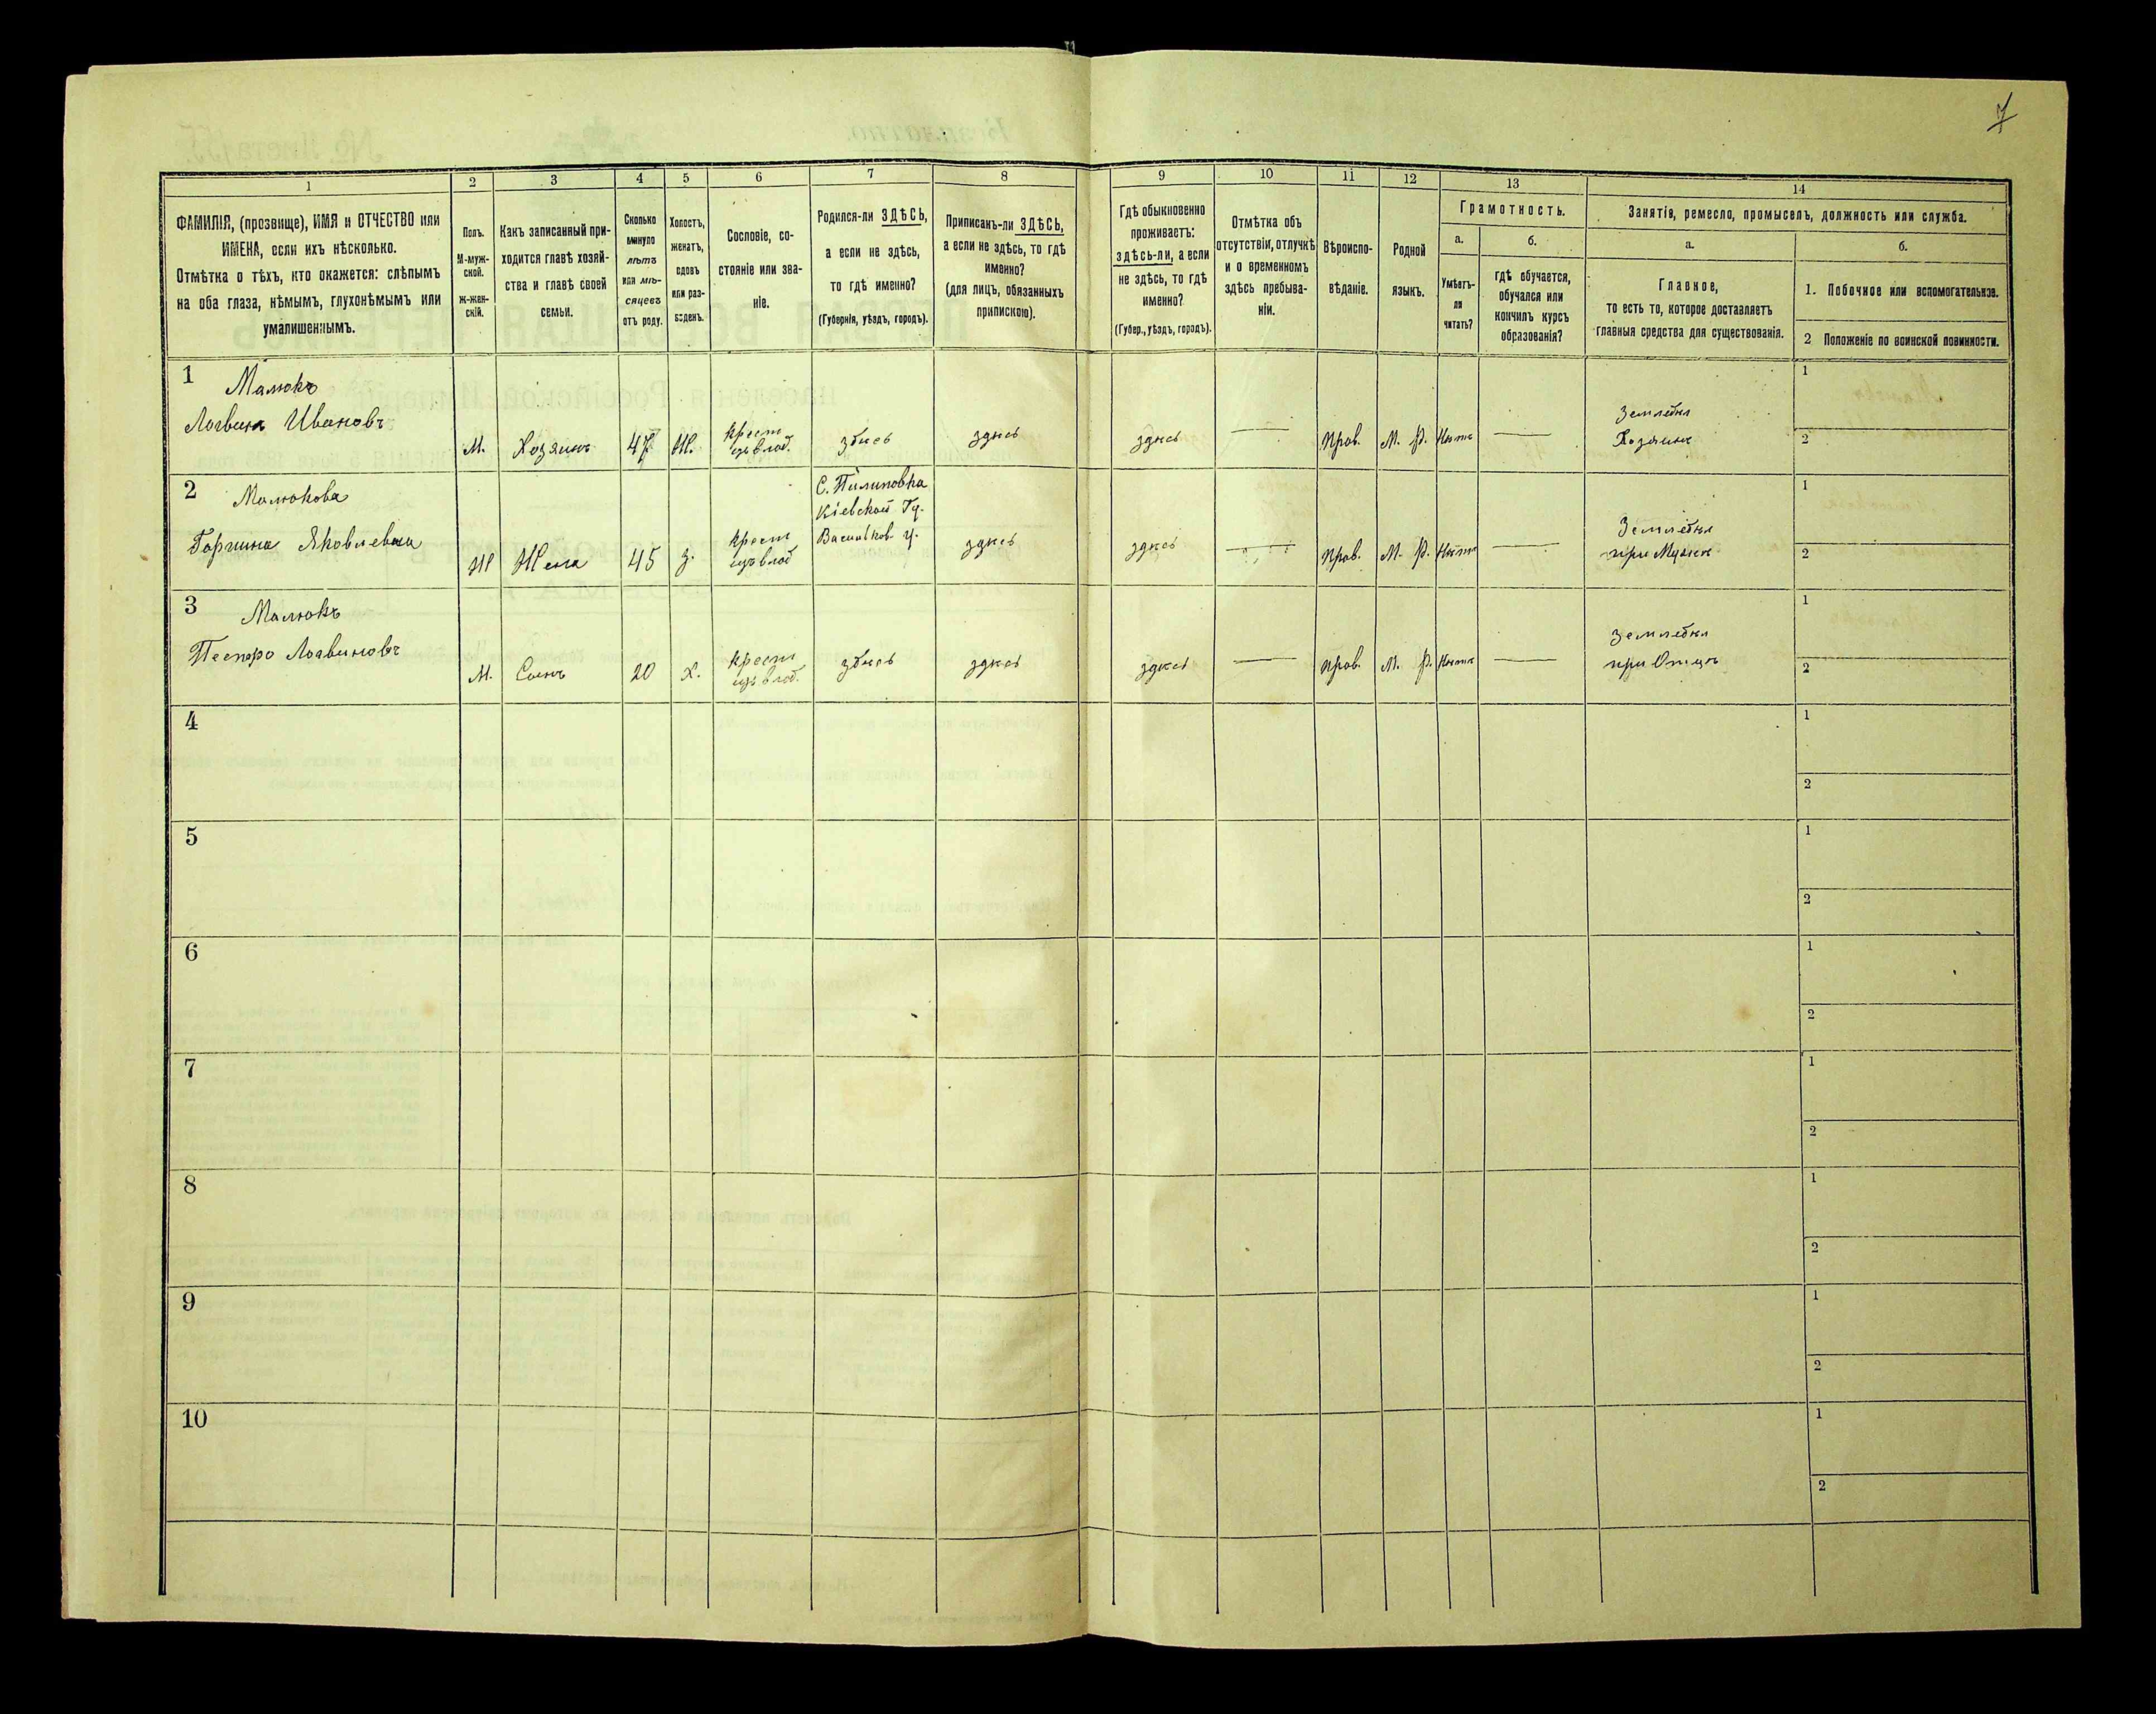 7
1
2
3
4
5
6
7
8
9
10
11
12
13
14
ФАМИЛІЯ, (прозвище), ИМЯ и ОТЧЕСТВО или
ИМЕНА, если ихъ нѣсколько.
Отмѣтка о тѣхъ, кто окажется: слѣпымъ
на оба глаза, нѣмымъ, глухонѣмымъ или
умалишеннымъ.
Полъ.
М-муж-
ской.
ж-жен-
скій.
Какъ записанный при-
ходится главѣ хозяй-
ства и главѣ своей
семьи.
Сколько
минуло
лѣтъ
или мѣ-
сяцевъ
отъ роду.
Холостъ,
женатъ,
вдовъ
или раз-
веденъ.
Сословіе, со-
стояніе или зва-
ніе.
Родился-ли ЗДѢСЬ,
а если не здѣсь,
то гдѣ именно?
(Губернія, уѣздъ, городъ).
Приписанъ-ли ЗДѢСЬ,
а если не здѣсь, то гдѣ
именно?
(для лицъ, обязанныхъ
припискою).
Гдѣ обыкновенно
проживаетъ:
здѣсь-ли, а если
не здѣсь, то гдѣ
именно?
(Губер., уѣздъ, городъ).
Отмѣтка объ
отсутствіи, отлучкѣ
и о временномъ
здѣсь пребыва-
ніи.
Вѣроиспо-
вѣданіе.
Родной
языкъ.
Грамотность.
а.
б.
Умѣетъ-
ли
читать?
гдѣ обучается,
обучался или
кончилъ курсъ
образованія?
Занятія, ремесло, промыселъ, должность или служба.
а.
б.
Главное,
то есть то, которое доставляетъ
главныя средства для существованія.
1. Побочное или вспомогательное.
2 Положеніе по воинской повинности.
1
Малюкъ
Логвинъ Ивановъ
М.
Хозяинъ
47
Ж.
крест
изъ влад.
здѣсь
здѣсь
здѣсь
—
Прав.
М. Р.
Нѣтъ
—
Земледѣл
Хозяинъ
1
2
2
Малюкова
Горпина Яковлевна
Ж
Жена
45
З.
крест
изъ влад
С. Пилиповка
Кіевской Гу.
Васильков у.
здѣсь
здѣсь
—
Прав.
М. Р.
Нѣтъ
—
Земледѣл
при Мужѣ
1
2
3
Малюкъ
Петро Логвиновъ
М.
Сынъ
20
Х.
крест
изъ влад.
здѣсь
здѣсь
здѣсь
—
Прав.
М. Р.
Нѣтъ
—
Земледѣл
при Отцѣ
1
2
4
1
2
5
1
2
6
1
2
7
1
2
8
1
2
9
1
2
10
1
2